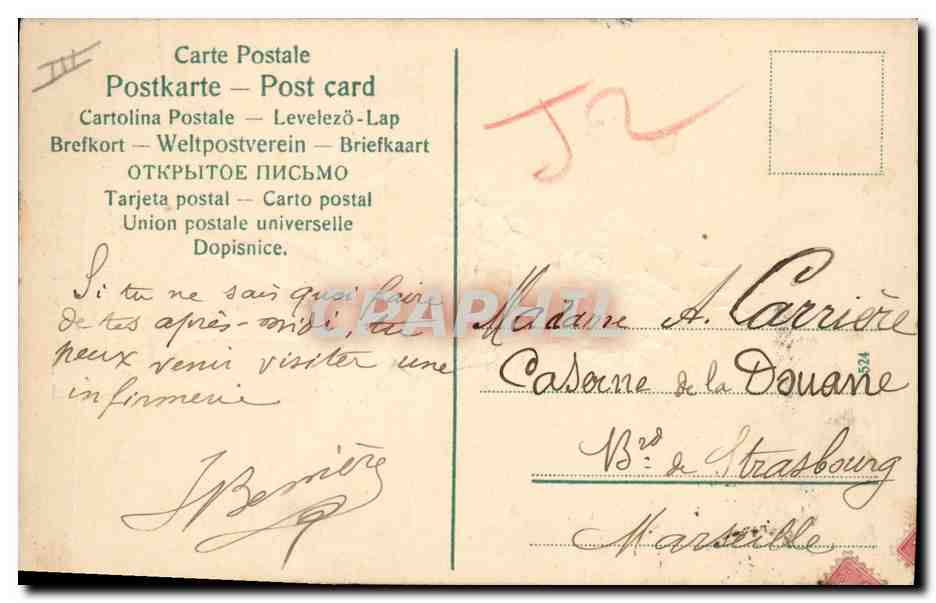 III
Carte Postale
Postkarte — Post card
Cartolina Postale — Levelezö-Lap
Brefkort — Weltpostverein — Briefkaart
ОТКРЫТОЕ ПИСЬМО
Tarjeta postal — Carto postal
Union postale universelle
Dopisnice.
Si tu ne sais quoi faire
de tes après-midi, tu
peux venir visiter une
infirmerie
J2
Madame A. Carrière
Caserne de la Douane
Brd. de Strasbourg
Marseille
524
CPAPHIL